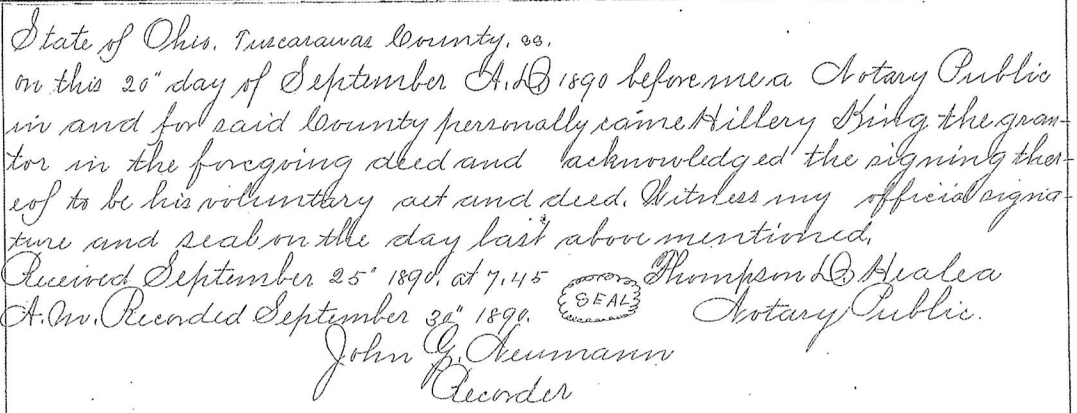 State of Ohio, Tuscarawas County, ss.
on this 20" day of September A.D. 1890 before me a Notary Public
in and for said County personally came Hillery King the gran-
tor in the foregoing deed and acknowledged the signing ther-
eof to be his voluntary act and deed. Witness my official signa-
ture and seal on the day last above mentioned.
Received September 25" 1890. at 7.45 SEAL Thompson D. Healea
A.M. Recorded September 30" 1890. Notary Public.
John G. Neumann
Recorder